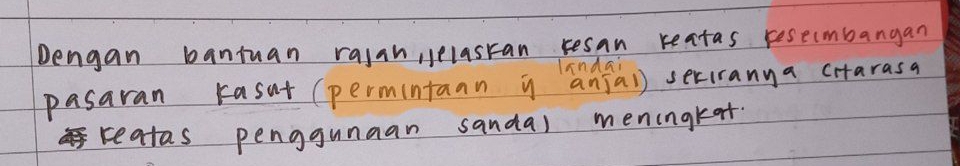 Dengan bantuan rajah, jelaskan kesan keatas keseimbangan
landai
pasaran kasut (permintaan yg anjal) sekiranya citarasa
keatas penggunaan sandal meningkat.